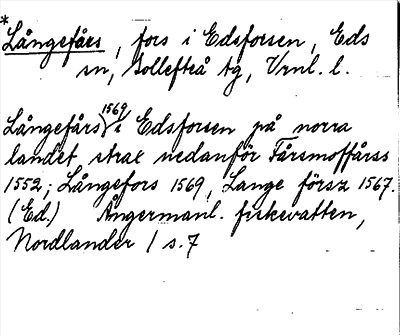 * Långefårs, fors i Edsforsen, Eds
sn, Sollefteå tg, Vrnl. l.
Långefårs 1569 i Edsforsen på norra
landet, strax nedanför Fårsmoffårss
1552; Långefors 1569, Lange försz 1567.
(Ed.) Ångermanl. fiskevatten,
Nordlander / s. 7